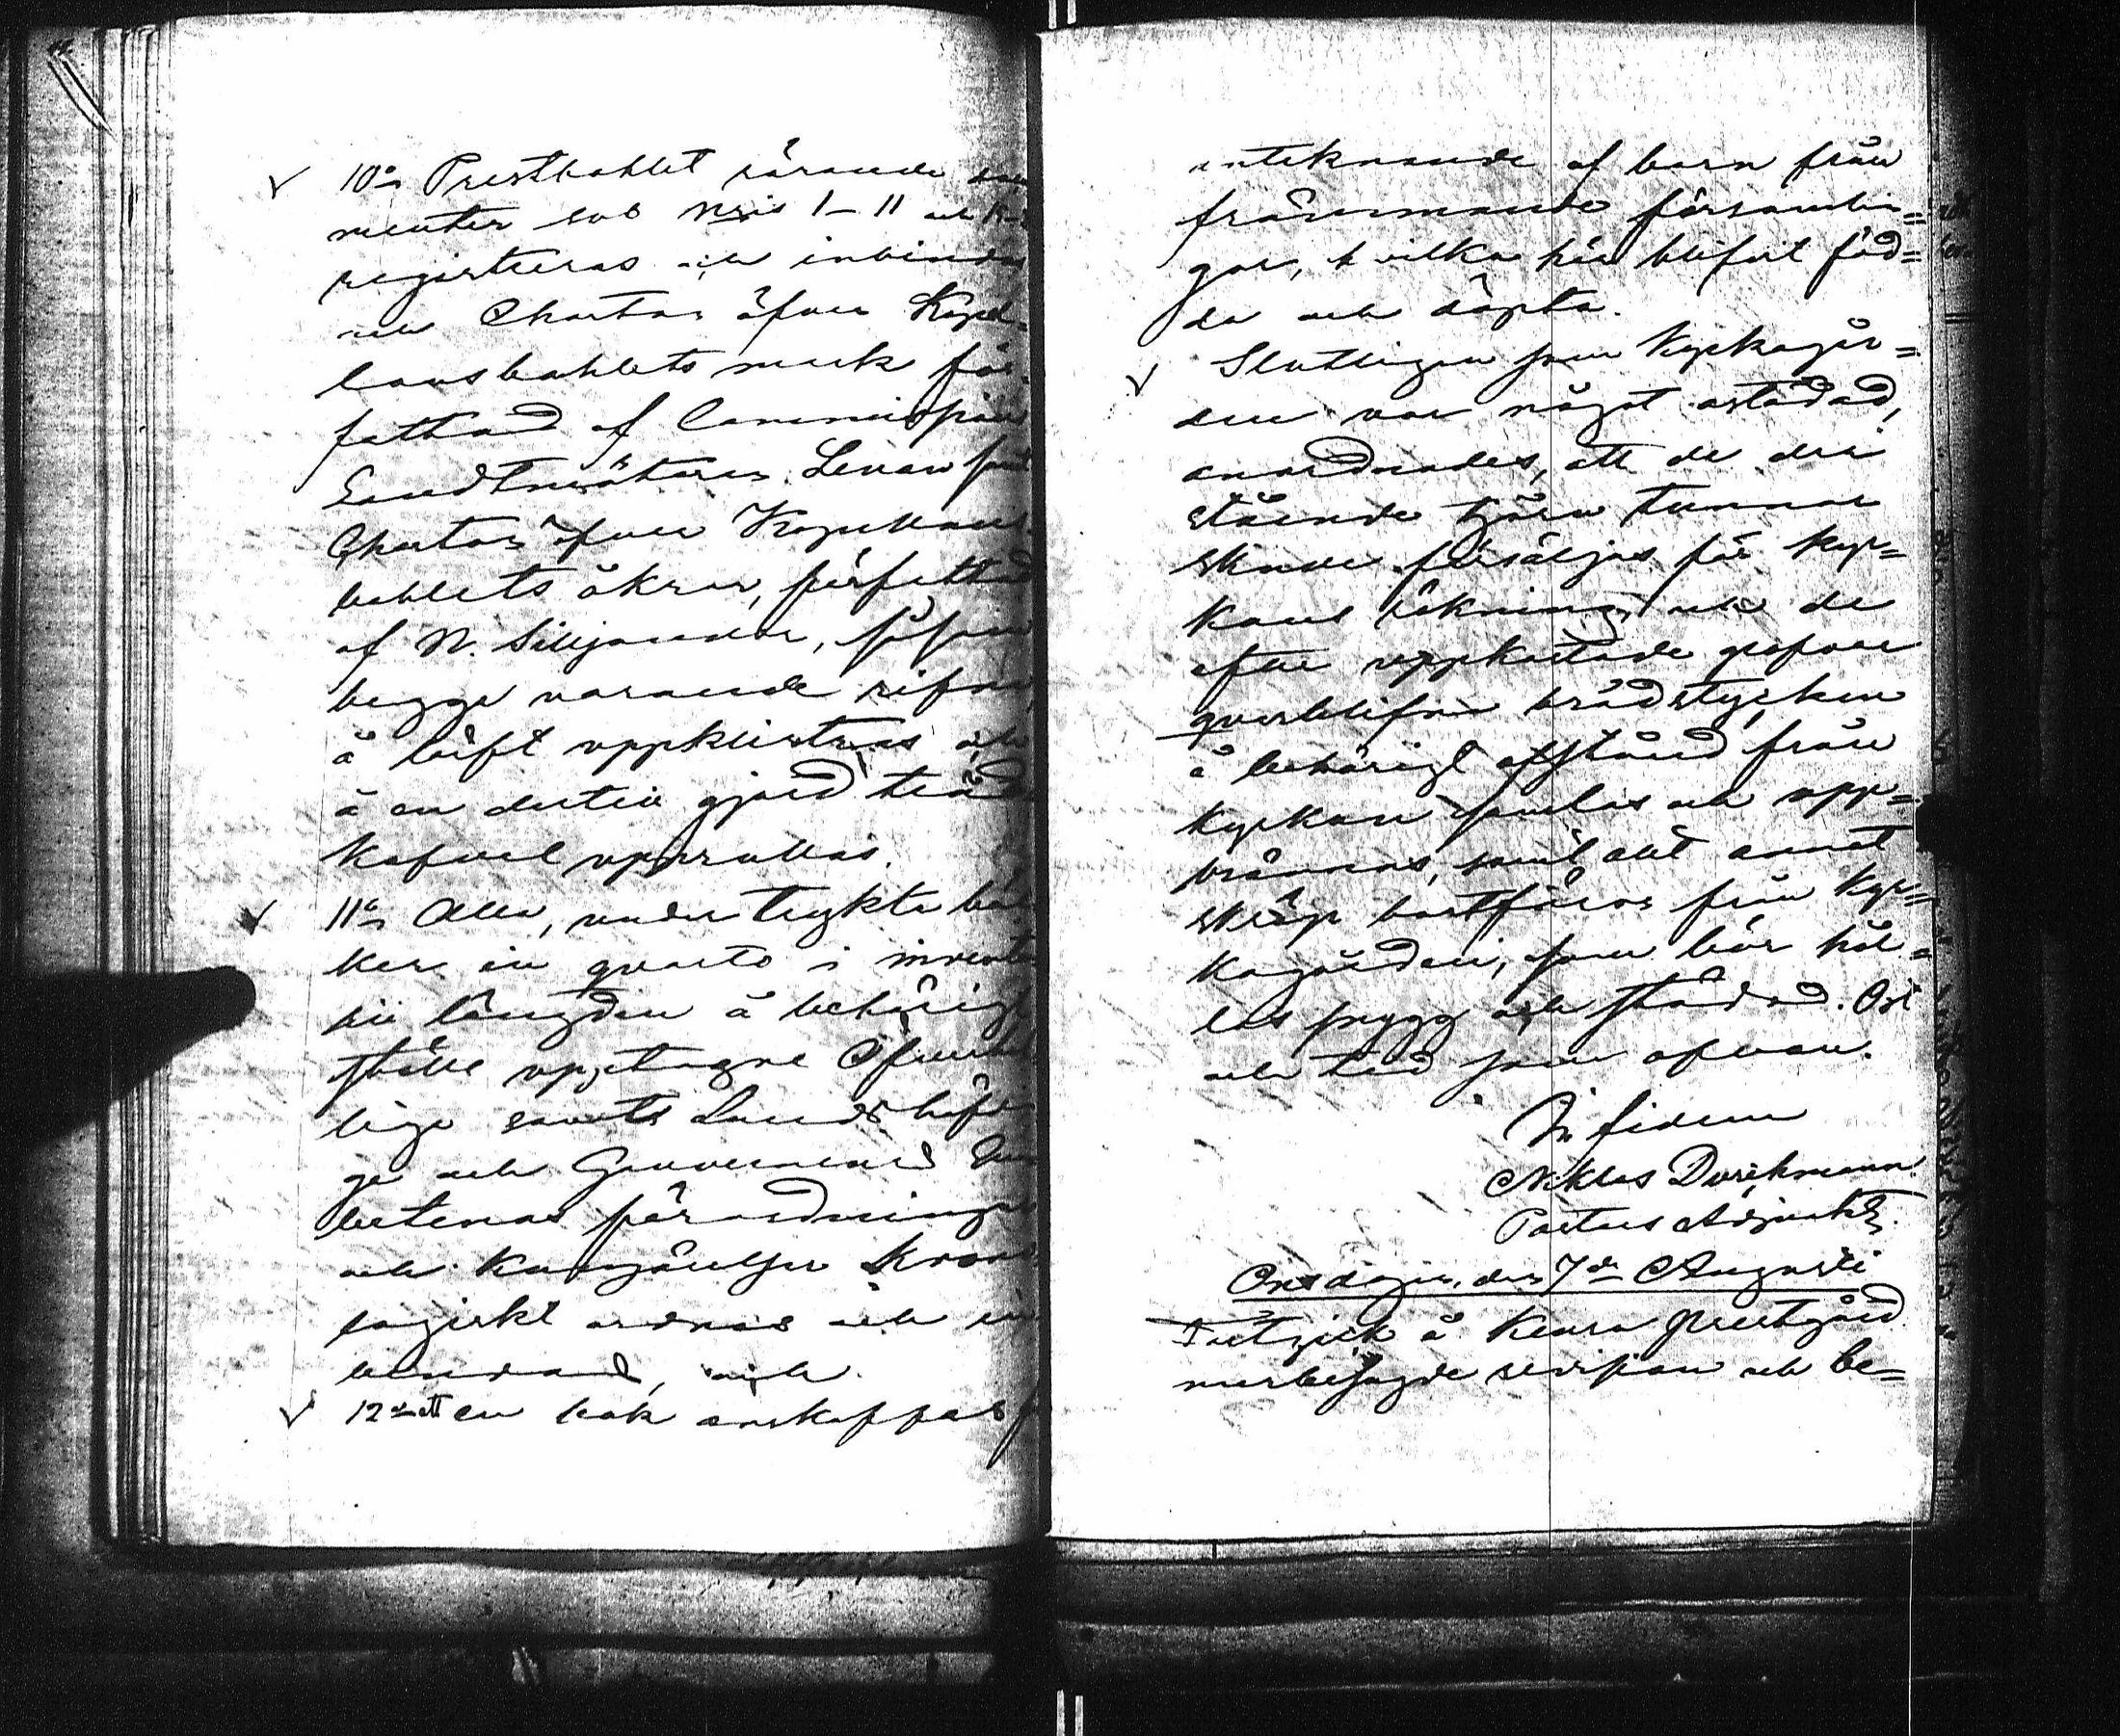 10:o Prestbohlet rörande docu
menter sub Nris 1–11 och 15–
registreras och inbindas
och Chartan öfver Kapel=
lansbohlets mark för=
fattad af Commissions
Landtmätaren Lenam samt
Chartan öfver Kapellans
bohlets åkrar, författad
af N. Silljander, såsom
begge varande rifna
å läift uppklistras och
å en dertill gjord träd
kafvel upprullas.
11:o Alla, under tryckta bö
ker in qvarto i invent
rii längden å behörigt
ställe upptagne Öfverhet
lige samt Landshöfdin
ge och Gouvernements Em
betenas förordningar
och Kungörelser Krono
logiskt ordnas och in
bindas, och
12:o att en bok anskaffas f
inteknande af barn från
främmande församlin=
gar, hvilka här blifvit föd=
da och döpta.
Slutligen som Kyrkogår=
den var något ostädad,
anordnades, att de der
stående tjäru tunnor
skulle försäljas för kyr=
kans räkning och de
efter uppkastade grafvar
qvarblifna brädstycken
å behörigt afstånd från
kyrkan samlas och upp=
brännas, samt allt annat
skräp bortföras från Kyr=
kogården, som bör hål=
las snygg och städad. Ort
och tid som ofvan.
In fidem
Niklas Durchmann
Pastors Adjunkt.
Onsdagen den 7de Augusti
Företogs å Kemi prestgård
merbesagde revision och be=